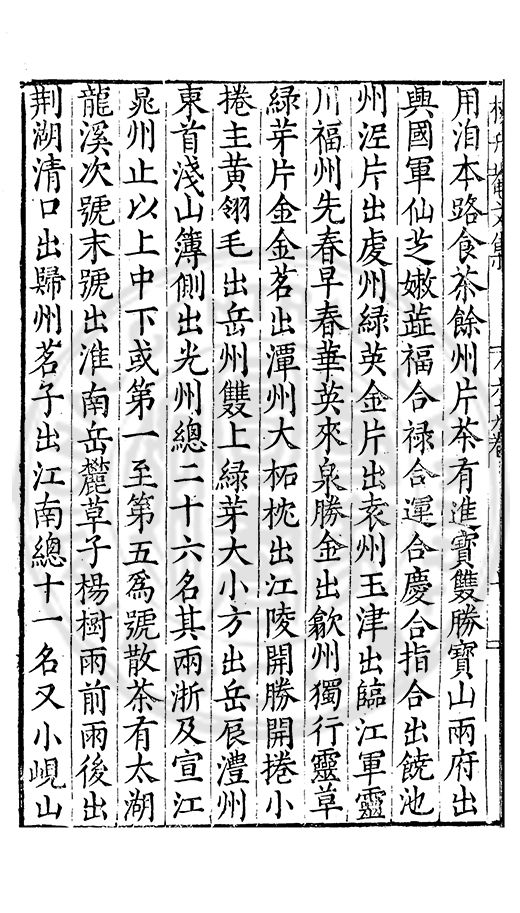 用洎本路食茶餘州片茶有進寶雙勝寶山兩府出
興國軍仙芝嫩蕋福合禄合運合慶合指合出饒池
州泥片出虔州綠英金片出袁州玉津出臨江軍靈
川福州先春早春華英來泉勝金出歙州獨行靈草
綠芽片金金茗出潭州大柘枕出江陵開勝開捲小
捲主黄翎毛出岳州雙上綠芽大小方出岳辰澧州
東首淺山簿側出光州總二十六名其兩浙及宣江
晁州止以上中下或第一至第五爲號散茶有太湖
龍溪次號末號出淮南岳麓草子楊樹雨前雨後出
荆湖清口出歸州茗子出江南總十一名又小峴山